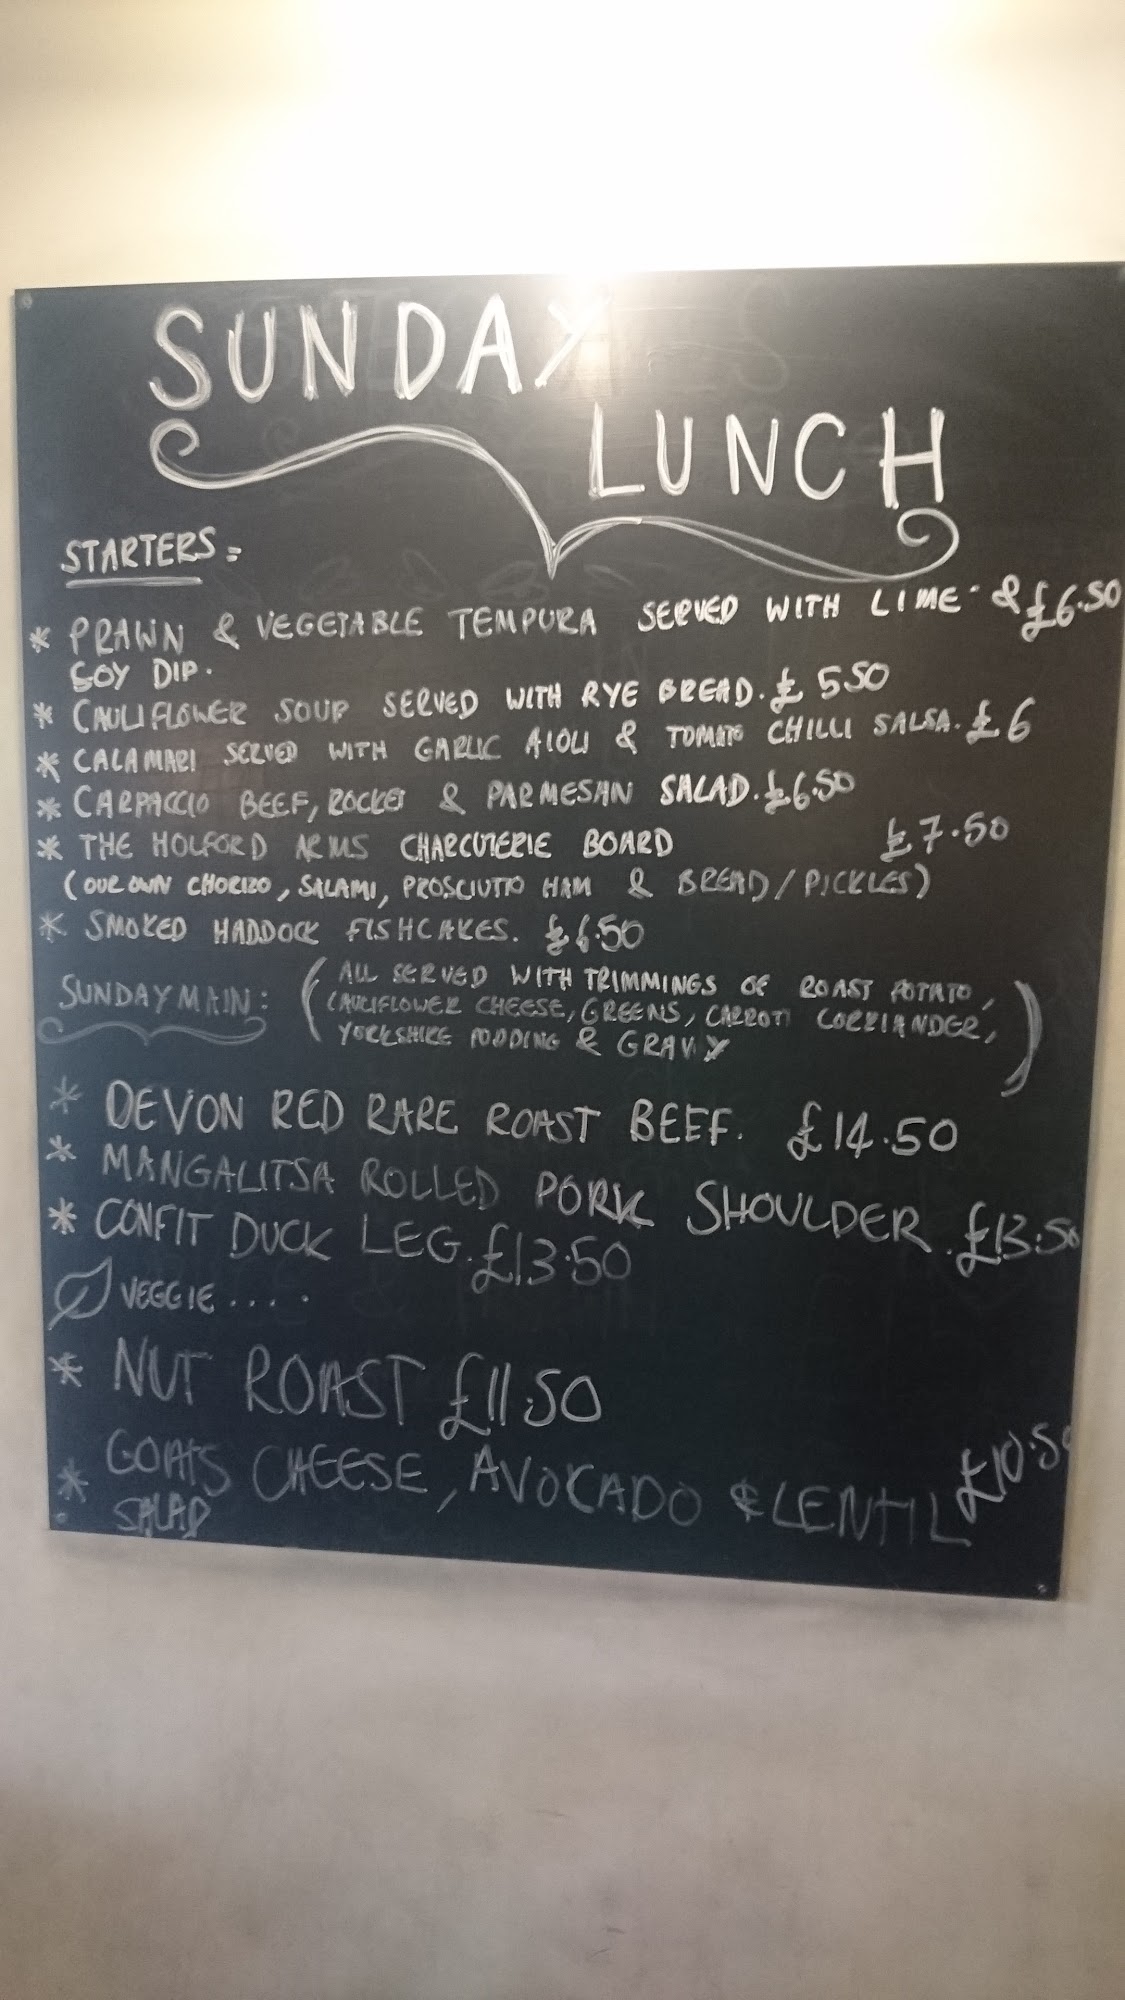 SUNDAY
LUNCH
STARTERS =
* PRAWN & VEGETABLE TEMPURA SERVED WITH LIME & £6.50
SOY DIP.
* CAULIFLOWER SOUP SERVED WITH RYE BREAD. £5.50
* CALAMARI SERVED WITH GARLIC AIOLI & TOMATO CHILLI SALSA. £6
* CARPACCIO BEEF, ROCKET & PARMESAN SALAD. £6.50
* THE HOLFORD ARMS CHARCUTERIE BOARD £7.50
(OUR OWN CHORIZO, SALAMI, PROSCIUTTO HAM & BREAD/PICKLES)
* SMOKED HADDOCK FISHCAKES. £6.50
SUNDAY MAIN: (ALL SERVED WITH TRIMMINGS OF ROAST POTATO,
CAULIFLOWER CHEESE, GREENS, CARROT CORRIANDER,
YORKSHIRE PUDDING & GRAVY)
* DEVON RED RARE ROAST BEEF. £14.50
* MANGALITSA ROLLED PORK SHOULDER. £13.50
* CONFIT DUCK LEG. £13.50
VEGGIE .....
* NUT ROAST £11.50
* GOATS CHEESE, AVOKADO & LENTIL £10.50
SALAD